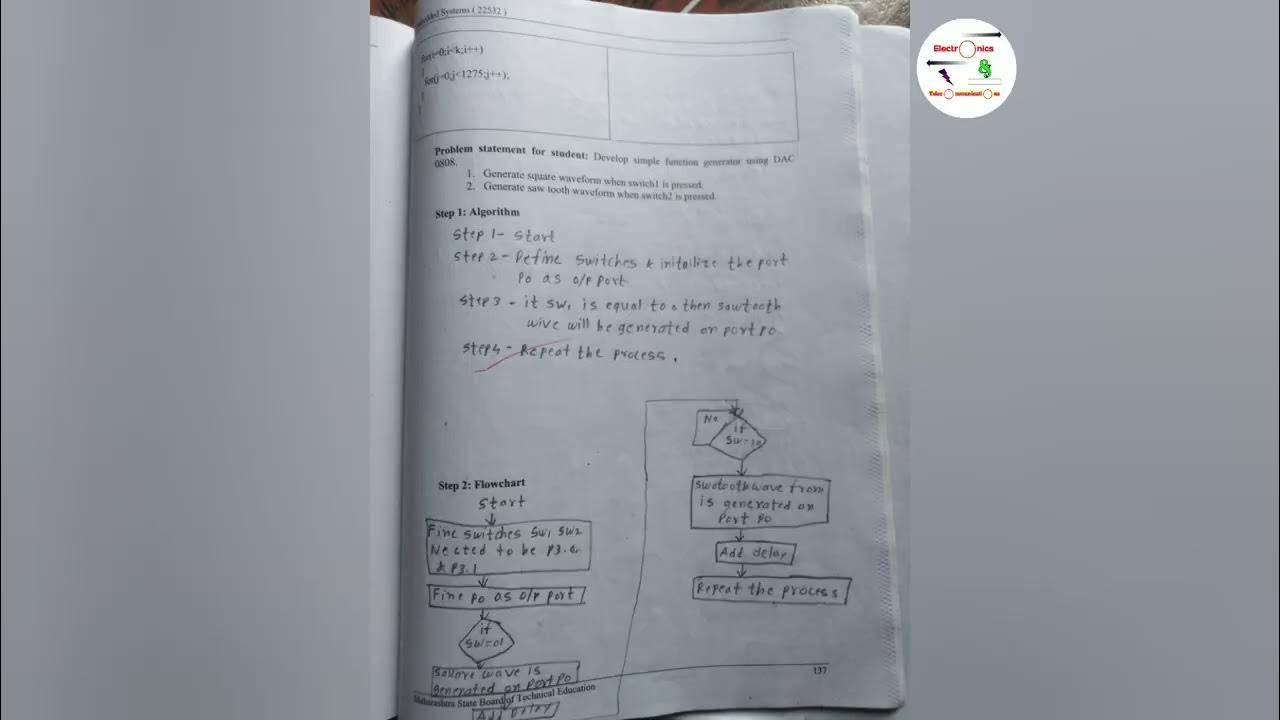 Embedded Systems ( 22532 )
for(i=0;i<k;i++)
for(j=0;j<1275;j++);
Problem statement for student: Develop simple function generator using DAC
0808.
1. Generate square waveform when switch1 is pressed.
2. Generate saw tooth waveform when switch2 is pressed.
Step 1: Algorithm
Step 1- Start
Step 2 - Define switches & initailize the port
P0 as O/P port
Step 3 - it SW1 is equal to 0 then sawtooth
wive will be generated on port P0
Step4 - Repeat the process.
Step 2: Flowchart
Start
Fine switches SW1 SW2
Nected to be P3.0
& P3.1
Fine P0 as O/P port
if
SW=01
Square wave is
generated on Port P0
Add Delay
No
if
SW=20
Swotooth wave from
is generated on
Port P0
Add delay
Repeat the process
137
Maharashtra State Board of Technical Education
Electronics
&